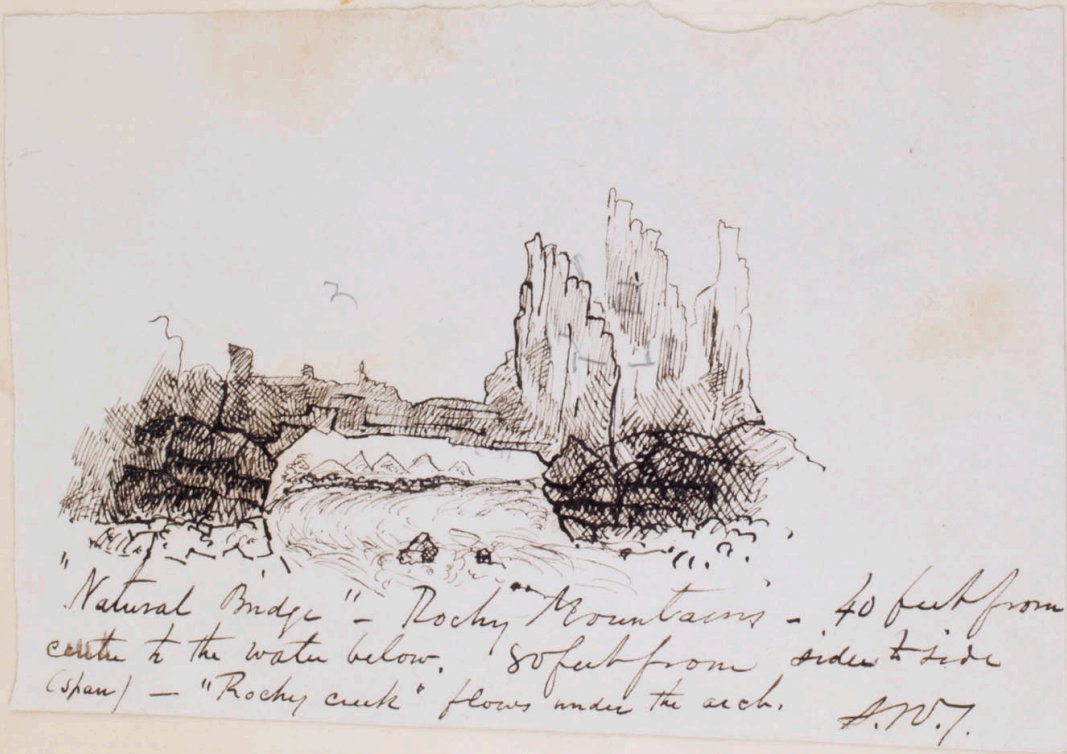 "Natural Bridge" - Rocky Mountains - 40 feet from
centre to the water below. 80 feet from side to side
(span) - "Rocky creek" flows under the arch.